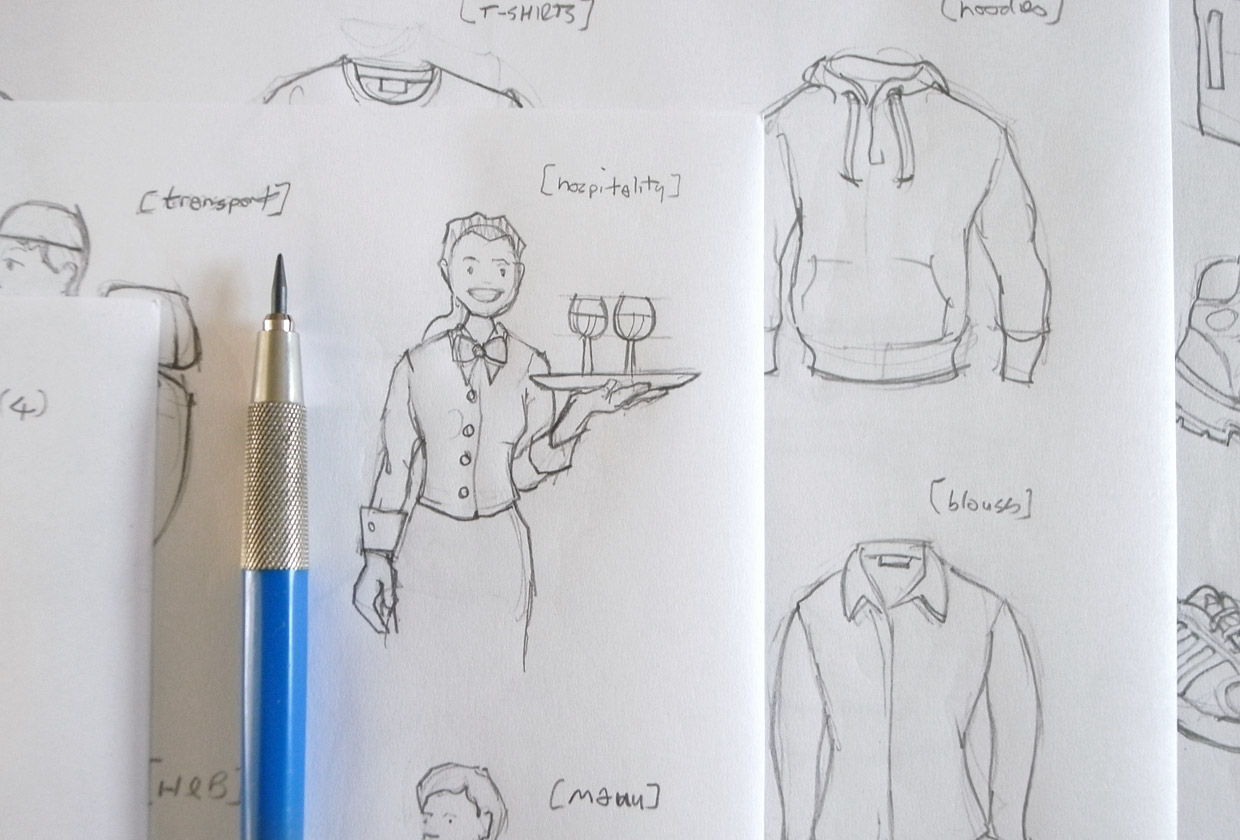 [T-SHIRTS]
[hoodies]
[transport]
[hospitality]
(4)
[blouses]
[H&B]